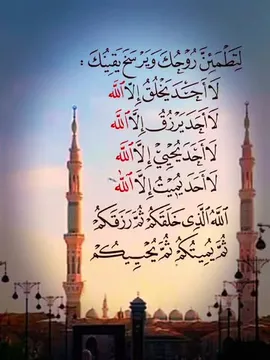 لِتَطْمَئِنَّ رُوحُكَ وَيَرْسَخَ يَقِينُكَ :
لَا أَحَدَ يَخْلُقُ إِلَّا اللّٰه
لَا أَحَد يَرْزُقُ إِلَّا اللّٰه
لَا أَحَد يُحْيِيْ إِلَّا اللّٰه
لَا أَحَد يُمِيتُ إِلَّا اللّٰه
اللَّهُ الَّذِي خَلَقَكُمْ ثُمَّ رَزَقَكُمْ
ثُمَّ يُمِيتُكُمْ ثُمَّ يُحْيِيكُمْ